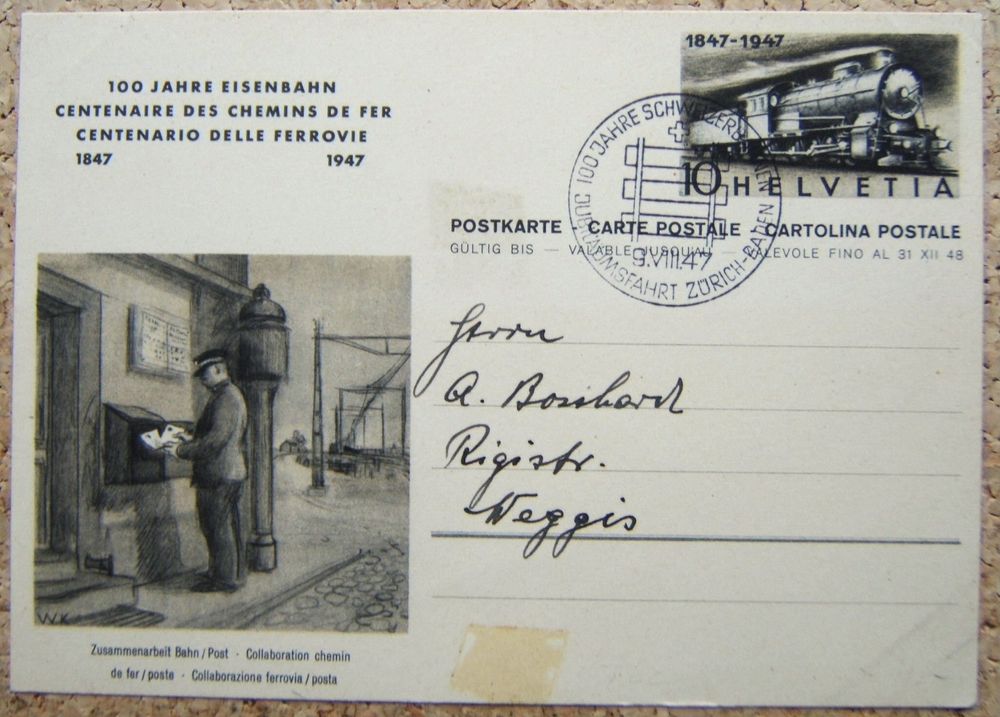 100 JAHRE EISENBAHN
CENTENAIRE DES CHEMINS DE FER
CENTENARIO DELLE FERROVIE
1847 1947
1847-1947
10 HELVETIA
100 JAHRE SCHWEIZERBAHNEN
JUBILÄUMSFAHRT ZÜRICH-BADEN
9.VIII.47
POSTKARTE - CARTE POSTALE - CARTOLINA POSTALE
GÜLTIG BIS — VALABLE JUSQU'AU — VALEVOLE FINO AL 31 XII 48
Herrn
A. Bosshard
Rigistr.
Weggis
WK
Zusammenarbeit Bahn/Post · Collaboration chemin
de fer/poste · Collaborazione ferrovia/posta